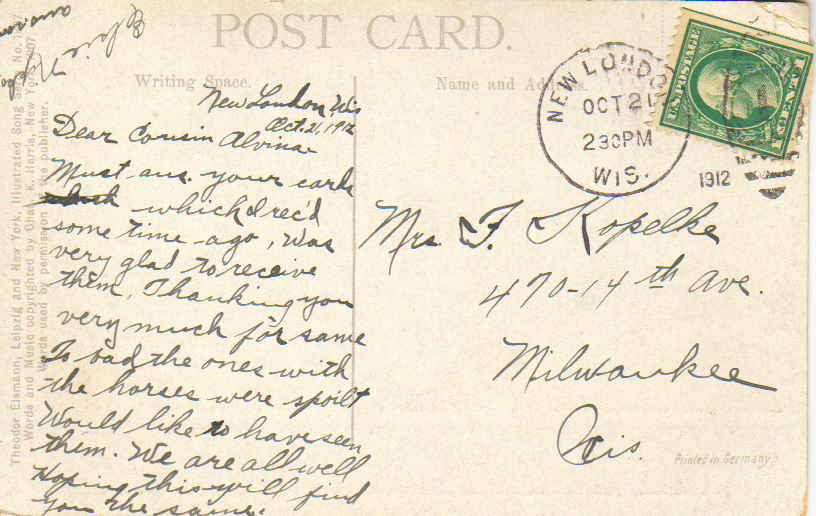 POST CARD.
Writing Space.
Name and Address.
New London, Wis
Oct. 21, 1912
Dear Cousin Alvina-
Must ans. your cards
which I rec'd
some time ago, Was
very glad to receive
them. Thanking you
very much for same
To bad the ones with
the horses were spoilt
Would like to have seen
them. We are all well
Hoping this will find
you the same.
Elsie
NEW LONDON
OCT 21
230PM
WIS.
1912
U.S. POSTAGE
Mrs F. Kopelke
470-14th Ave.
Milwaukee
Wis.
Printed in Germany.
Theodor Eismann, Leipzig and New York, Illustrated Song Series No.
Words and Music copyrighted by Chas. K. Harris, New York, 1907
Words used by permission of the publisher.